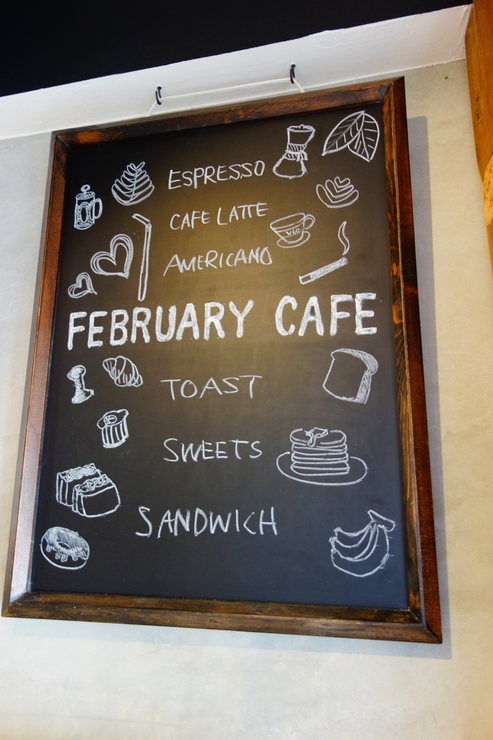 ESPRESSO
CAFE LATTE
AMERICANO
FEBRUARY CAFE
TOAST
SWEETS
SANDWICH